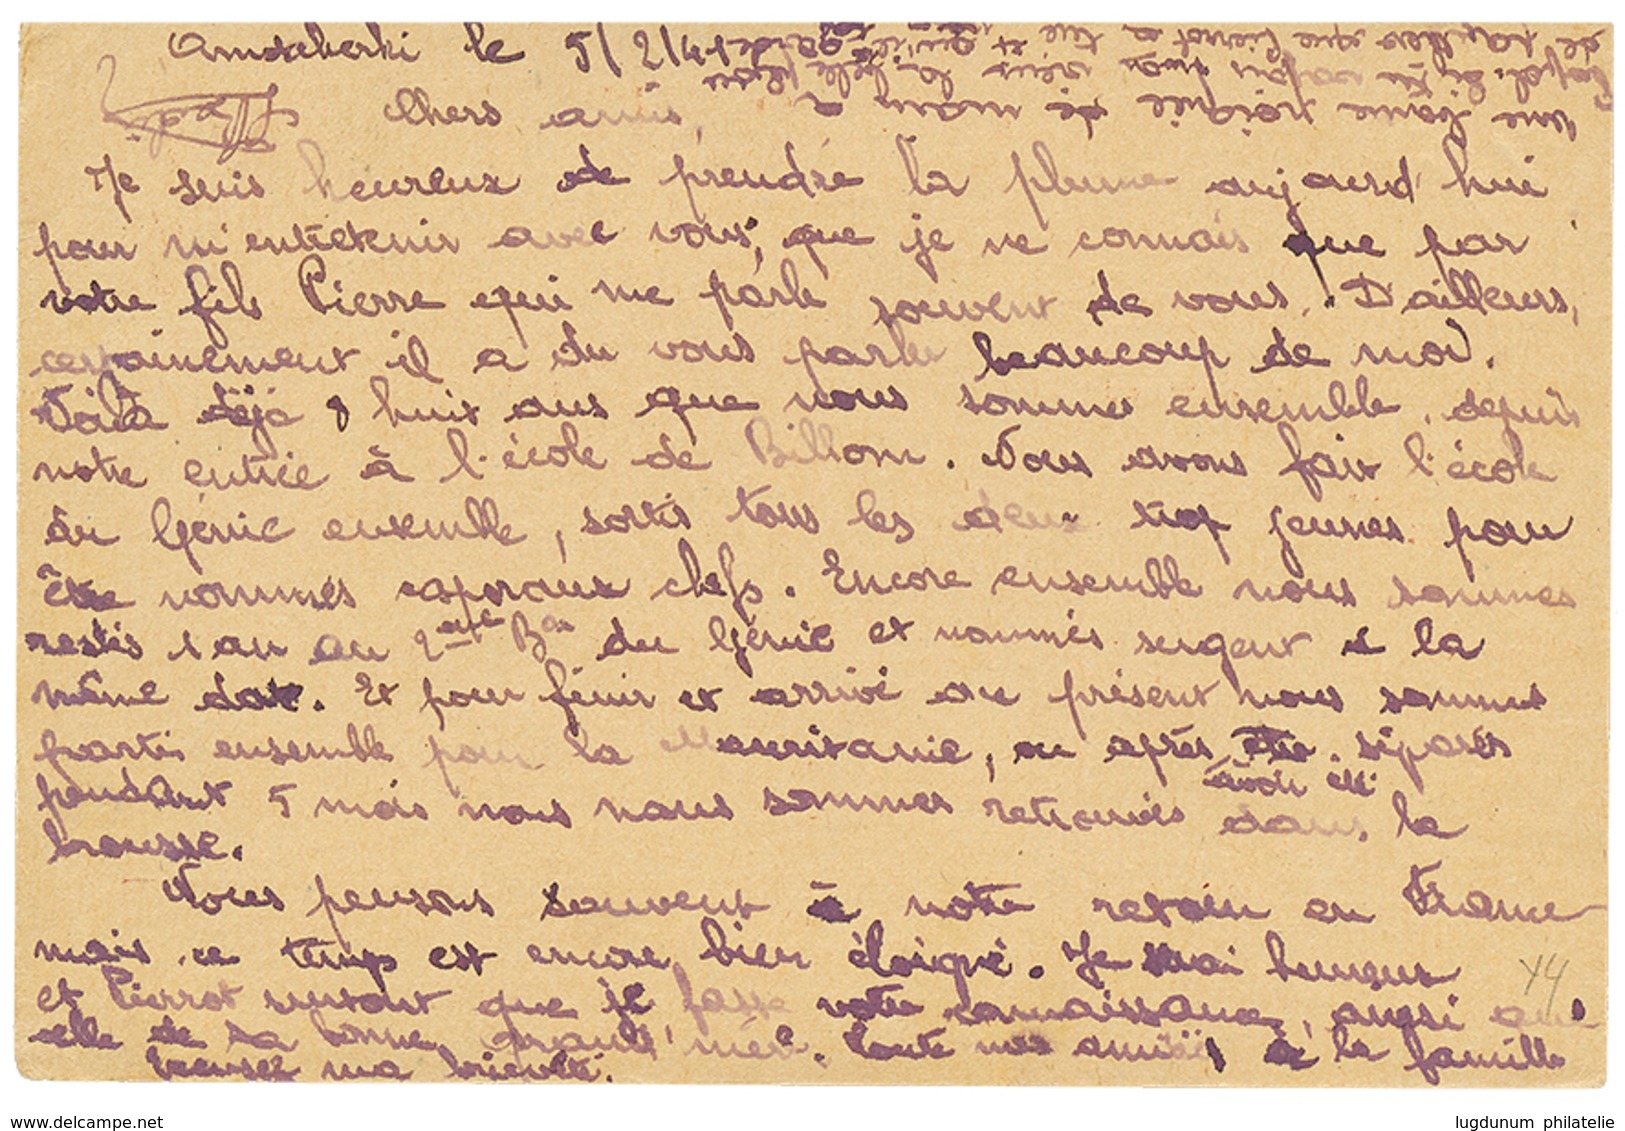 le 5/2/41
Chers amis,
Je suis heureux de prendre la plume aujourd'hui
pour m'entretenir avec vous, que je ne connais que par
votre fils Pierre qui me parle souvent de vous. D'ailleurs,
certainement il a du vous parler beaucoup de moi.
Voilà déjà 8 huit ans que nous sommes ensemble, depuis
notre entrée à l'école de Billom. Nous avons fait l'école
du Génie ensemble, sortis tous les deux trop jeunes pour
être nommés caporaux chefs. Encore ensemble nous sommes
restés 1 an au 2eme Bon du Génie et nommés sergent à la
même date. Et pour finir et arrivé au présent nous sommes
partis ensemble pour la Mauritanie, ou après séparés
avoir été
pendant 5 mois nous nous sommes retrouvés dans la
brousse.
Nous pensons souvent à notre retour en France
mais ce temps est encore bien éloigné. Je serai heureux
et Pierrot surtout que je fasse votre connaissance, aussi que
celle de sa bonne grand'mère. Toute mes amitiés à la famille
ma brièveté.
Une bonne poignée de main à
44
www.delcampe.net
lugdunum philatelie